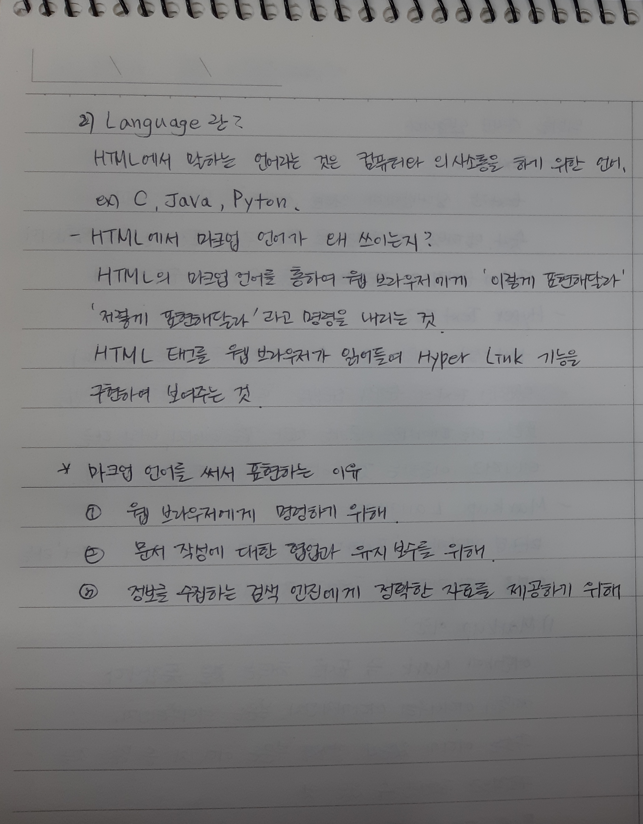 2) Language 란?
HTML에서 말하는 언어라는 것은 컴퓨터와 의사소통을 하기 위한 언어.
ex) C, Java, Pyton.
- HTML에서 마크업 언어가 왜 쓰이는지?
HTML의 마크업 언어를 통하여 웹 브라우저에게 '이렇게 표현해달라'
'저렇게 표현해달라'라고 명령을 내리는 것.
HTML 태그를 웹 브라우저가 읽어들여 Hyper Link 기능을
구현하여 보여주는 것.
* 마크업 언어를 써서 표현하는 이유
① 웹 브라우저에게 명령하기 위해.
② 문서 작성에 대한 협업과 유지보수를 위해.
③ 정보를 수집하는 검색 엔진에게 정확한 자료를 제공하기 위해